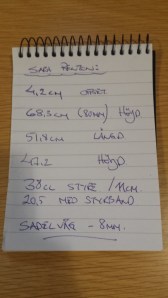 SARA PENTON:
4,2cm OFFSET
68,5cm (80mm) HÖJD
51,4cm LÄNGD
47,2 HÖJD
38cl STYRE / 11cm.
20,5 MED STYRBAND
SADELVÅG -8mm.